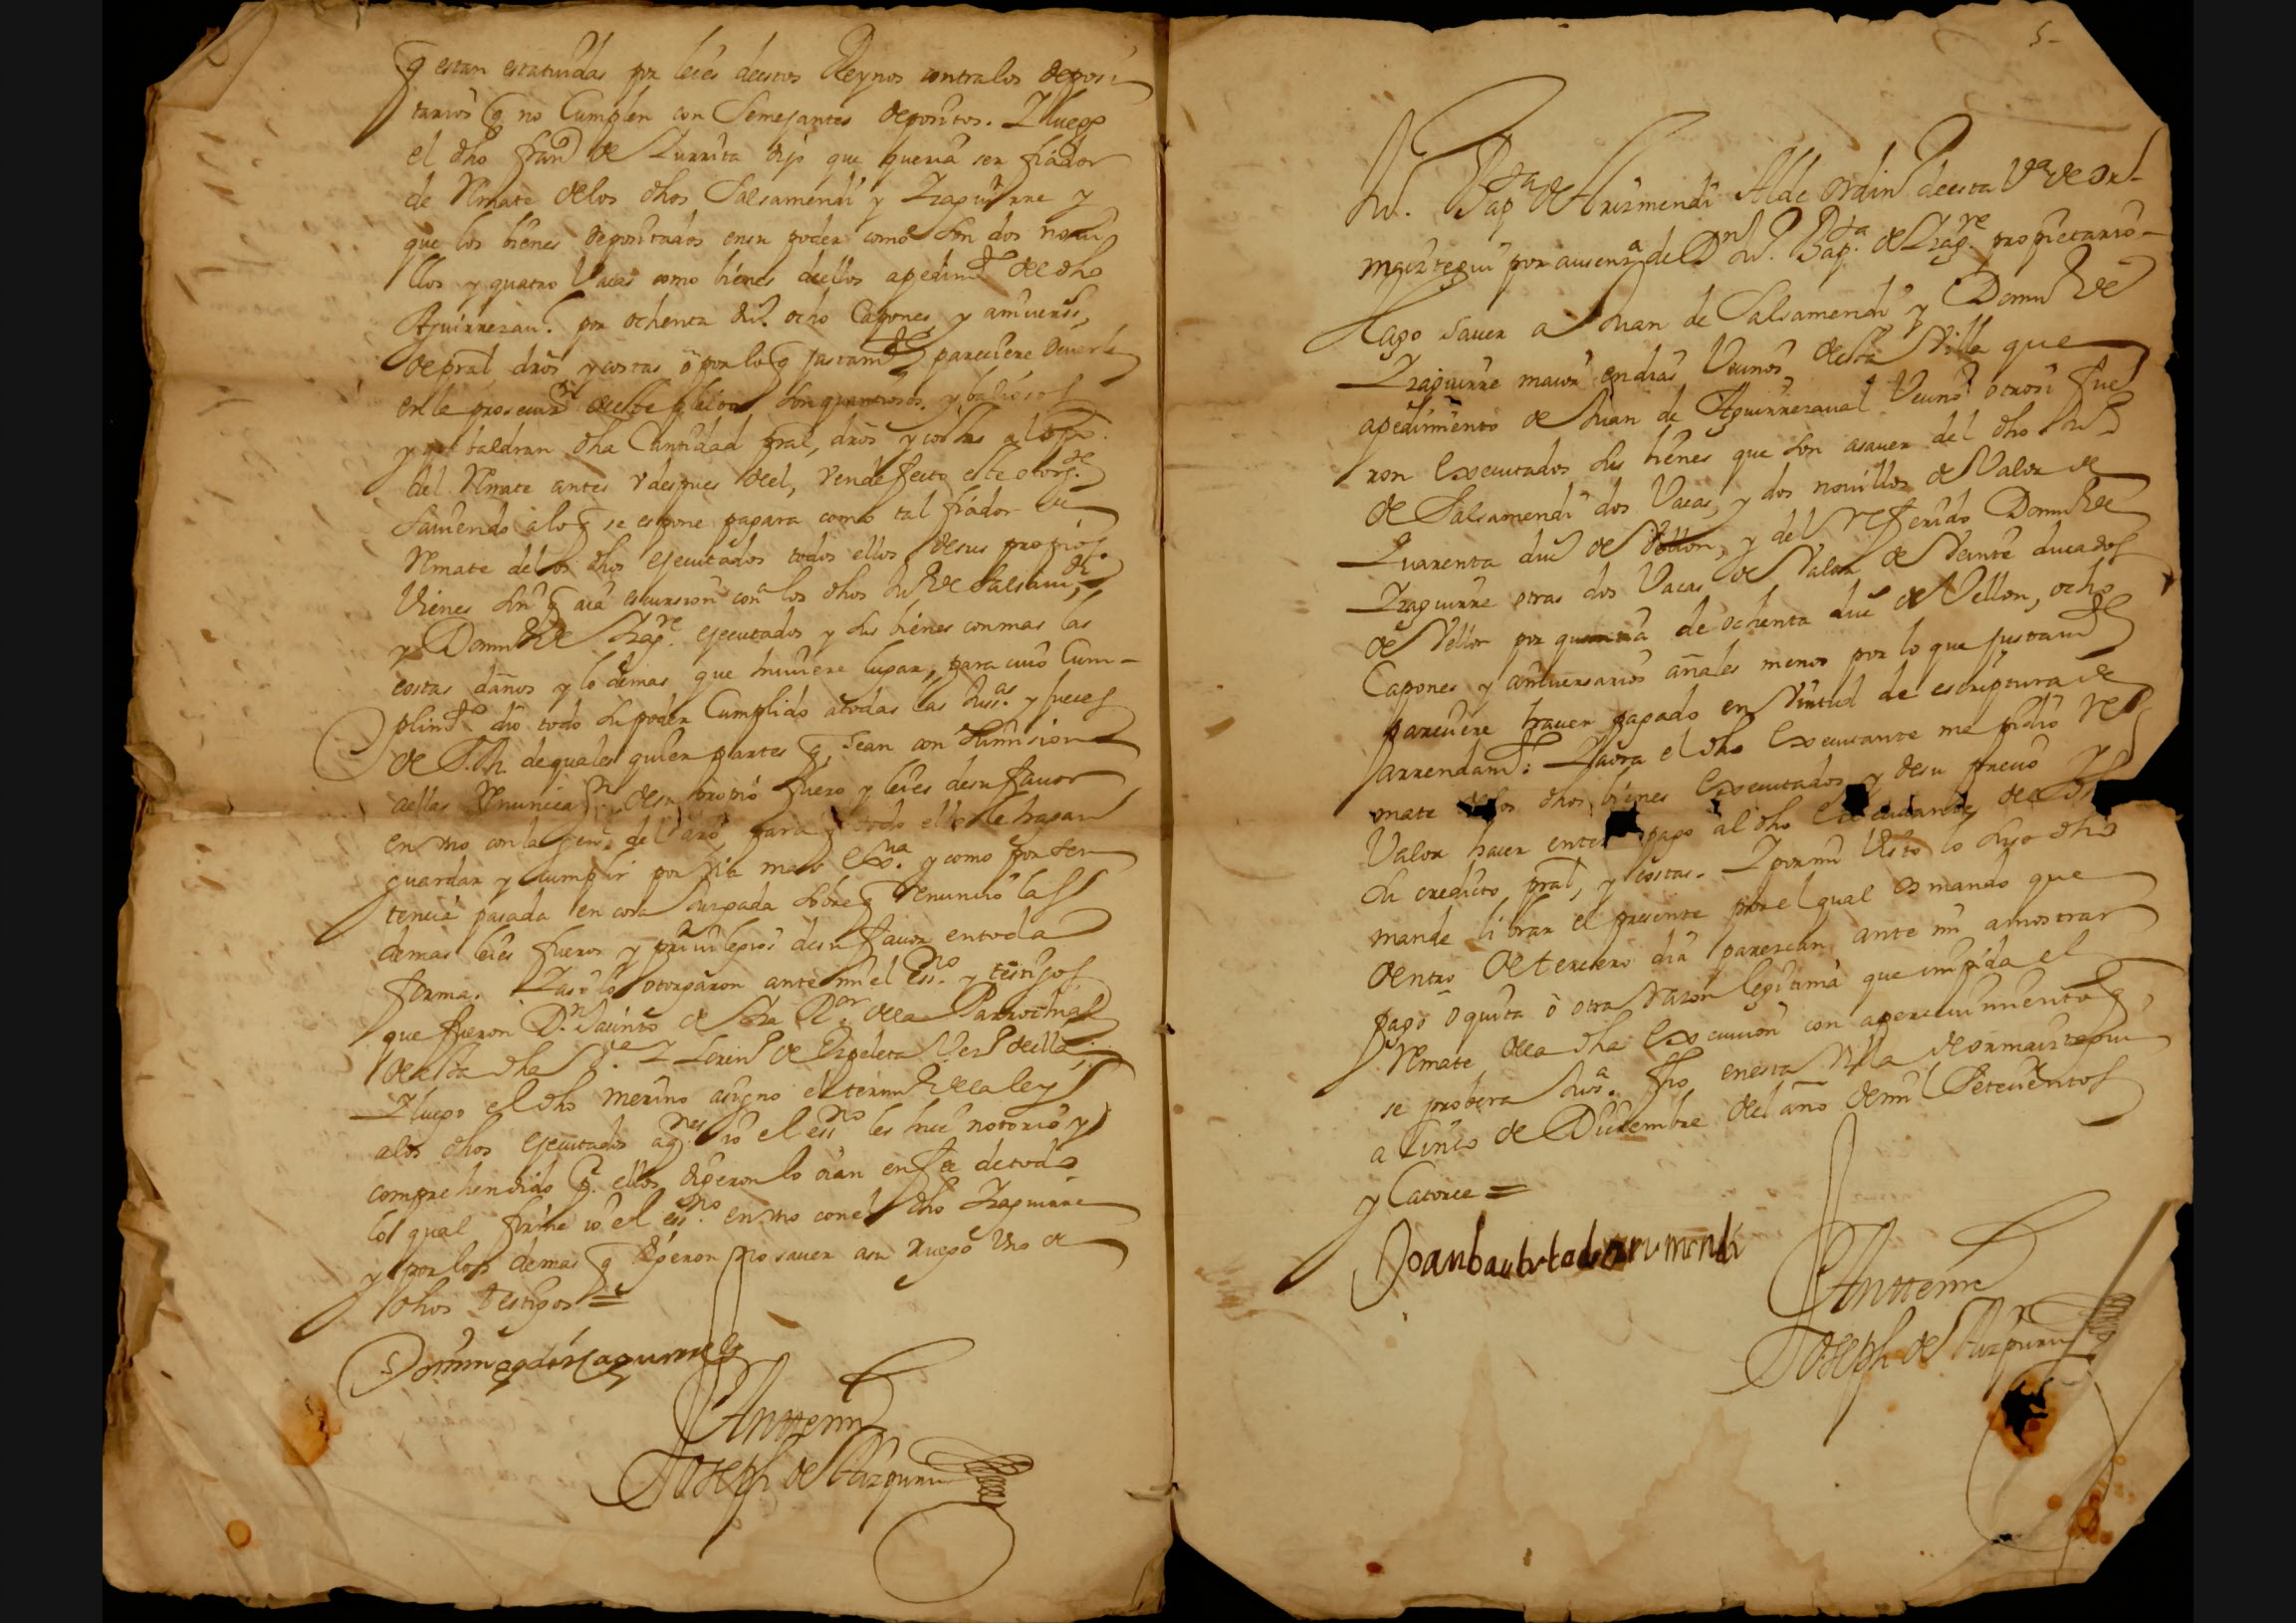 q estan estatuidas por leies destos Reynos contra los deposi
tarios q no Cumplen con Semejantes depositos. Y luego
el dho fran.co de Zurrita dijo que queria ser fiador
de Rmate delos dhos Salsamendi y Yzaguirre y
que los bienes depositados en su poder como son dos novi
llos y quatro Vacas como bienes dellos apedim.to de dho
Aguirrezau.l por ochenta du.s ocho Capones y aniuerss.
de pral dros y costas ō por lo q justam.te pareciere deuerle
en la prosecuz.on deste pleito son quantiosos y baliosos
y q baldran dha Cantidad pral, dros y costas al tpo.
del Rmate antes y despues del, y en defecto este otorg.te
Sauiendo alo q se espone pagara como tal fiador de
Rmate delos dhos ejecutados todos ellos de sus propios
Vienes sin q aia escursion con.a los dhos Ju.o de Salsam.di
y Domin.o de Yzag.re ejecutados y sus bienes con mas las
costas daños y lo demas que huuiere lugar, para cuio Cum-
plim.to dio todo su poder Cumplido a todas las Juss.as y jueces
de S.M. de quales quier partes q sean con sumision
aellas Renuncia.on de su propio fuero y leies de su fauor
en vno con la gen.l del dro para q todo ello le hagan
guardar y cumplir por via mas ex.na y como por sen
tencia pasada en cosa Juzgada sobre q Renuncio las
demas leies fueros y priuilegios de su fauor en toda
forma. Y asi lo otorgaron ante mi el ess.no y testigos
que fueron D.n Jacinto de R.or dela Parrochial
desta dha V.a Y Loren.o de Ezpeleta Vez.o della
Y luego el dho merino asigno el termi.o de la ley
alos dhos ejecutados a q.nes io el ess.no les hice notorio y
comprehendido q. ellos dijeron lo oian en fee de todo
lo qual firme io el ess.no en vno con el dho Yzaguirre
y por los demas q dijeron no sauer a su ruego Vno de
dhos testigos =
Domingo de Yzaguirre
Ante mi
Joseph de Aizpuru
5-
Ju.o Bap.ta de Arizmendi Alde ordin.o desta V.a de Or-
maiztegui por ausenz.a de D.n Ju.o Bap.ta de Yzag.re propietario-
Hago sauer a Juan de Salsamendi y Domin.o de
Yzaguirre maior en dias Vecinos desta Villa que
apedimiento de Juan de Aguirrezaual Vecino otrosi fue
ron Executados sus bienes que son asauer del dho Ju.o
de Salsamendi dos Vacas, y dos nouillos de Valor de
Quarenta du.s de Vellon, y del referido Domin.o de
Yzaguirre otras dos Vacas de Valor de Veinte ducados
de Vellon por quantia de ochenta du.s de Vellon, ocho
Capones y aniuersarios añales menos por lo que justam.te
pareciere hauer pagado en Virtud de escriptura de
arrendam.to: Y aora el dho Executante me pidio re
mate delos dhos bienes Executados y de su precio y
Valor hacer entero pago al dho Executante de
su credito pral, y costas. Y por mi Visto lo suso dho
mande librar el presente por el qual os mando que
dentro de tercero dia parezcan ante mi amostrar
pago ō quita ō otra razon legitima que impida el
Rmate dela dha Execucion con apercuimiento q
se probera Jus.a fho en esta Villa de ormaiztegui
a Cinco de Diciembre del año de mil Setecientos
y Catorce =
Joan bautista de arizmendi
Ante mi
Joseph de Aizpuru